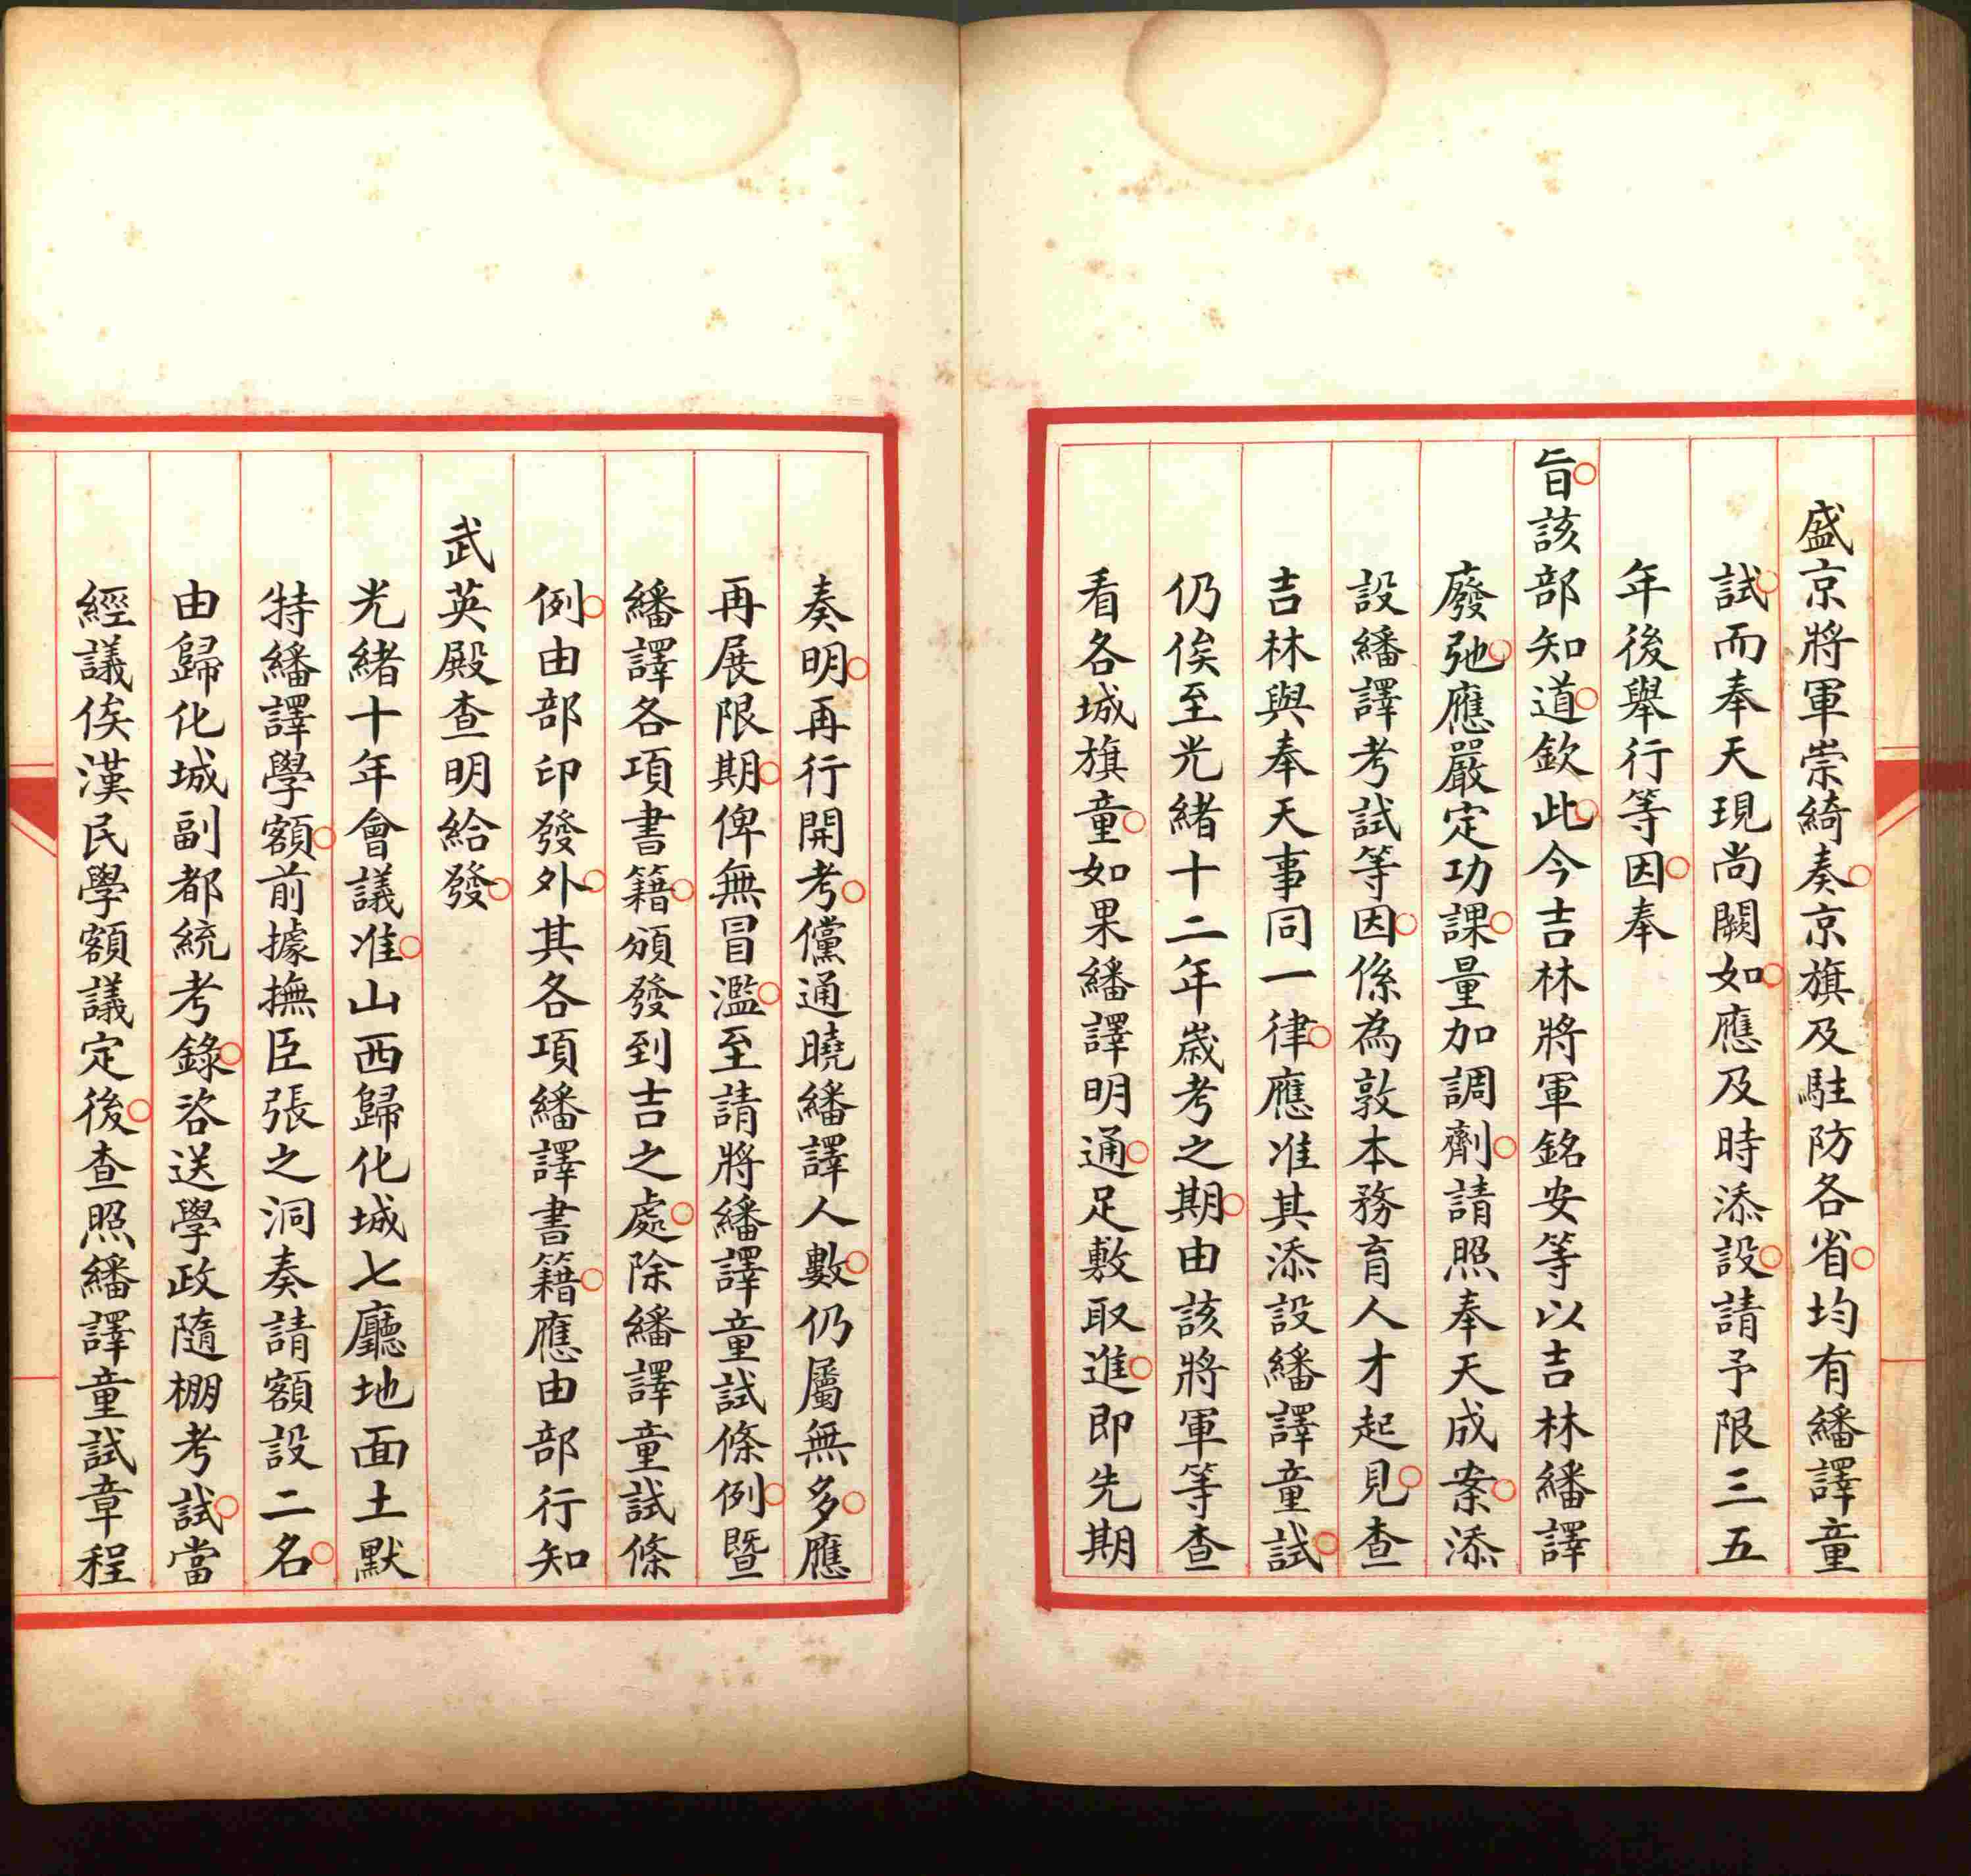 盛京將軍崇綺奏京旗及駐防各省均有繙譯童
試而奉天現尚闕如應及時添設請予限三五
年後舉行等因奉
旨該部知道欽此今吉林將軍銘安等以吉林繙譯
廢弛應嚴定功課量加調劑請照奉天成案添
設繙譯考試等因係為敦本務育人才起見查
吉林與奉天事同一律應准其添設繙譯童試
仍俟至光緒十二年歲考之期由該將軍等查
看各城旗童如果繙譯明通足敷取進即先期
奏明再行開考儻通曉繙譯人數仍屬無多應
再展限期俾無冒濫至請將繙譯童試條例暨
繙譯各項書籍頒發到吉之處除繙譯童試條
例由部印發外其各項繙譯書籍應由部行知
武英殿查明給發
光緒十年會議准山西歸化城七廳地面土默
特繙譯學額前據撫臣張之洞奏請額設二名
由歸化城副都統考錄咨送學政隨棚考試當
經議俟漢民學額議定後查照繙譯童試章程